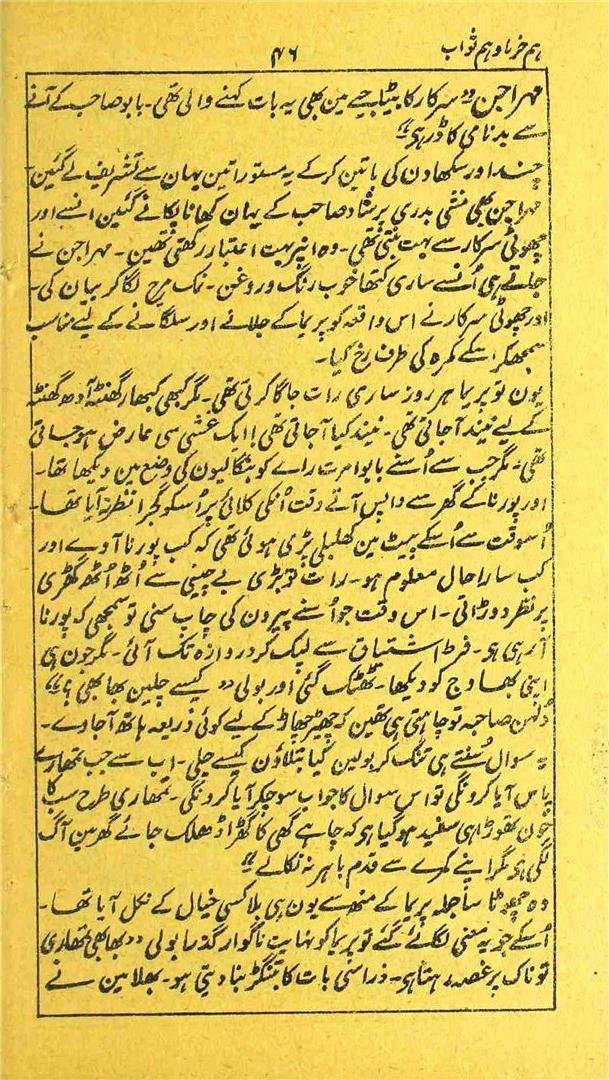 ہم خرما و ہم ثواب
۴۶
مہراجن “ سرکار کا بیٹا جیے مین بھی یہ بات کہنے والی تھی۔ بابو صاحب کے آنے
سے بدنامی کا ڈر ہی”
چندا اور سکھادن کی باتین کر کے یہ مستوراتین یہان سے تشریف لے گئین
مہراجن بھی منشی بدری پرشاد صاحب کے یہان کھانا پکانے گئین انسے اور
چھوٹی سرکار سے بہت بنتی تھی۔ وہ انپر بہت اعتبار رکھتی تھین۔ مہراجن نے
جاتے ہی اُنسے ساری کتھا خوب رنگ و روغن۔ نمک مرچ لگا کر بیان کی۔
اور چھوٹی سرکار نے اس واقعہ کو پریما کے جلانے اور سلگانے کے لیے مناسب
سمجھکر اسکے کمرہ کی طرف رخ کیا۔
یون تو پریما ہر روز ساری رات جاگا کرتی تھی۔ مگر کبھی کبھار گھنٹہ آدھ گھنٹہ
کے لیے نیند آجاتی تھی۔ نیند کیا آجاتی تھی ایک غشی سی عارض ہو جاتی
تھی۔ مگر جب سے اُسنے بابو امرت راے کو بنگالیون کی وضع مین دیکھا تھا۔
اور پورنا کے گھر سے واپس آتے وقت اُنکی کلائی پر اُسکو گجرا نظر نہ آیا تھا۔
اُسوقت سے اُسکے پیٹ مین کھلبلی پڑی ہوئی تھی کہ کب پورنا آوے اور
کب سارا حال معلوم ہو۔ رات کو بڑی بے چینی سے اُٹھ اُٹھ گھڑی
پر نظر دوڑاتی۔ اس وقت جو اُسنے پیرون کی چاپ سنی تو سمجھی کہ پورنا
آ رہی ہو۔ فرط اشتیاق سے لپک کر دروازہ تک آئی۔ مگر جون ہی
اپنی بھاوج کو دیکھا۔ ٹھٹک گئی اور بولی “ کیسے چلین بھابھی ؟”
دُلہن صاحبہ تو چاہتی ہی تھین کہ چھیڑ چھاڑ کے لیے کوئی ذریعہ ہاتھ آجاوے۔
یہ سوال سُنتے ہی تنک کر بولین کیا بتلاؤن کیسے چلی۔ اب سے جب تمھارے
پاس آیا کرونگی تو اس سوال کا جواب سوچکر آیا کرونگی۔ تمھاری طرح سب کا
خون تھوڑا ہی سفید ہو گیا ہی کہ چاہے گھی کا گھڑا ڈھلک جائے گھر مین آگ
لگی ہی مگر اپنے کمرے سے قدم باہر نہ نکالے”
وہ چھوٹا سا جملہ پریما کے منھ سے یون ہی بلا کسی خیال کے نکل آیا تھا۔
اُسکے جو یہ معنی لگائے گئے تو پریما کو نہایت ناگوار گذرا بولی “ بھابھی تمھاری
تو ناک پر غصہ رہتا ہی۔ ذرا سی بات کا بتنگڑ بنا دیتی ہو۔ بھلا مین نے